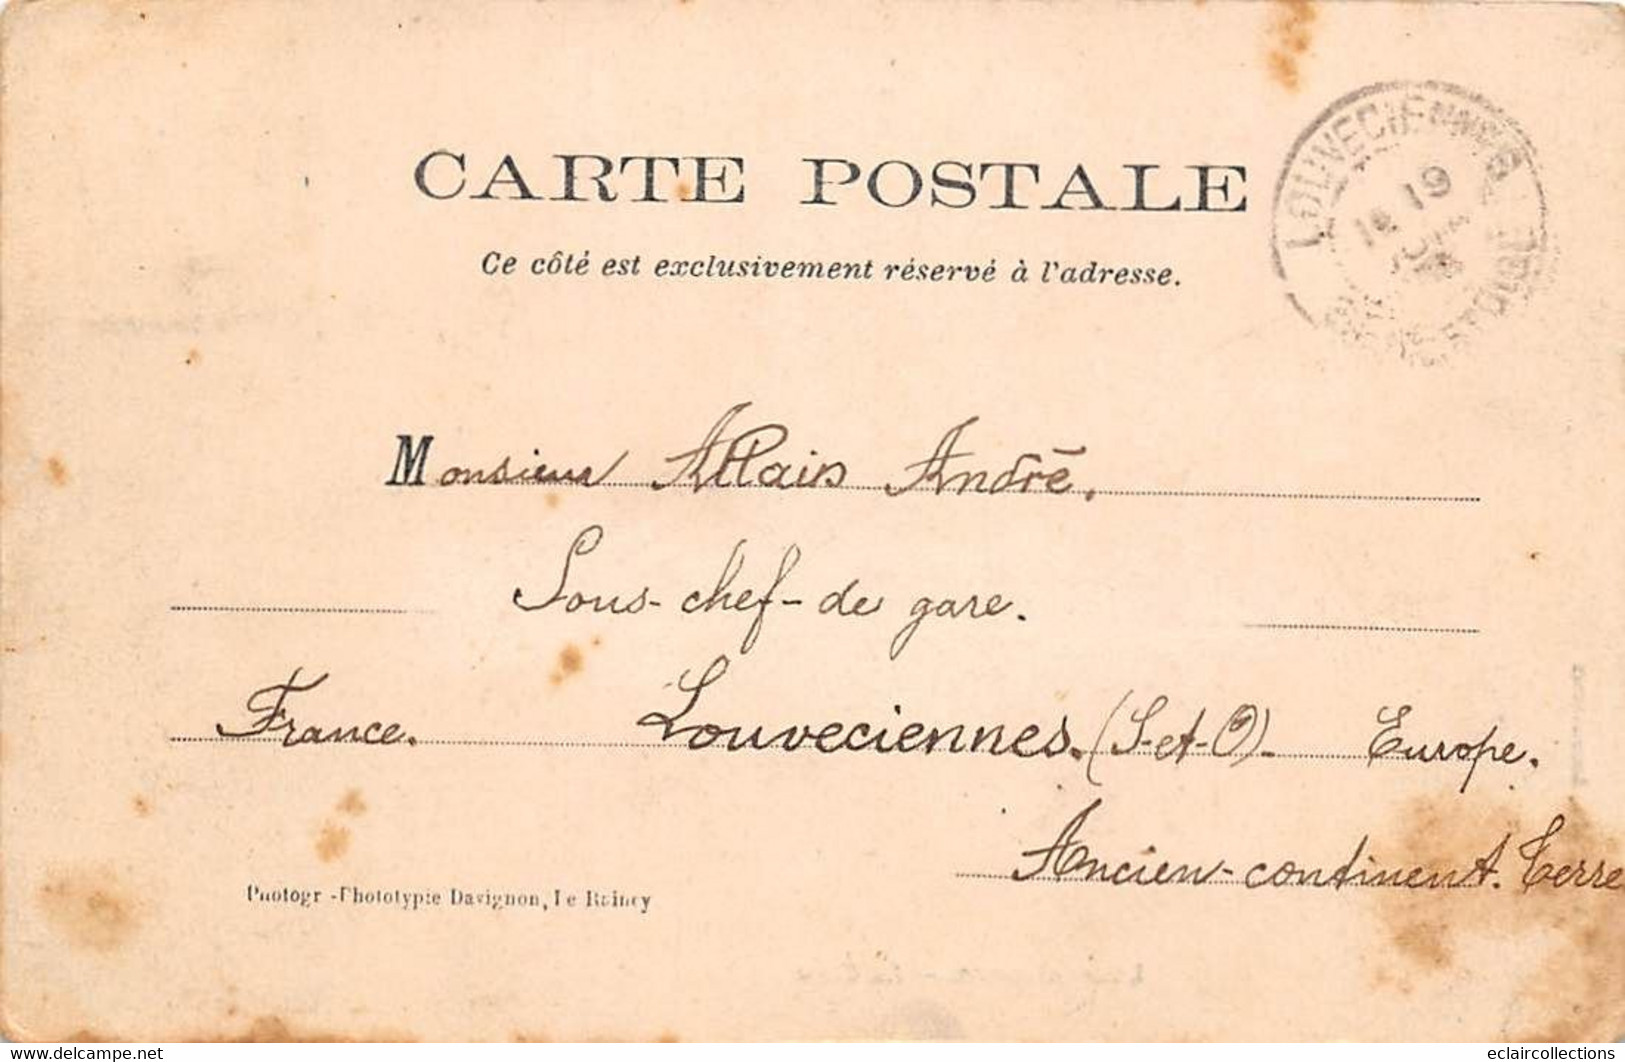 CARTE POSTALE
Ce côté est exclusivement réservé à l'adresse.
LOUVECIENNES
19
SEINE-ET-OISE
Monsieur Allais André.
Sous-chef-de gare.
France. Louveciennes. (S-et-O)- Europe.
Ancien-continent. Terre
Photogr-Phototypie Davignon, Le Raincy
© delcampe.net
eclaircollections